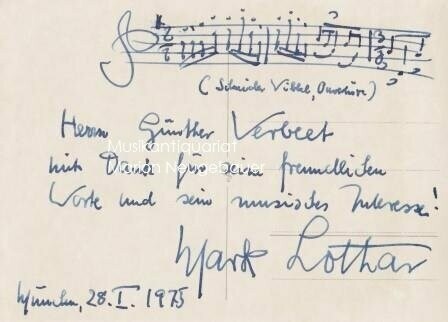 (Schneider Wibbel, Ouvertüre)
Herrn Günther Verbeet
Musikantiquariat
Marion Neugebauer
mit Dank für seine freundlichen
Worte und sein musisches Interesse!
Mark Lothar
München, 28.I.1975